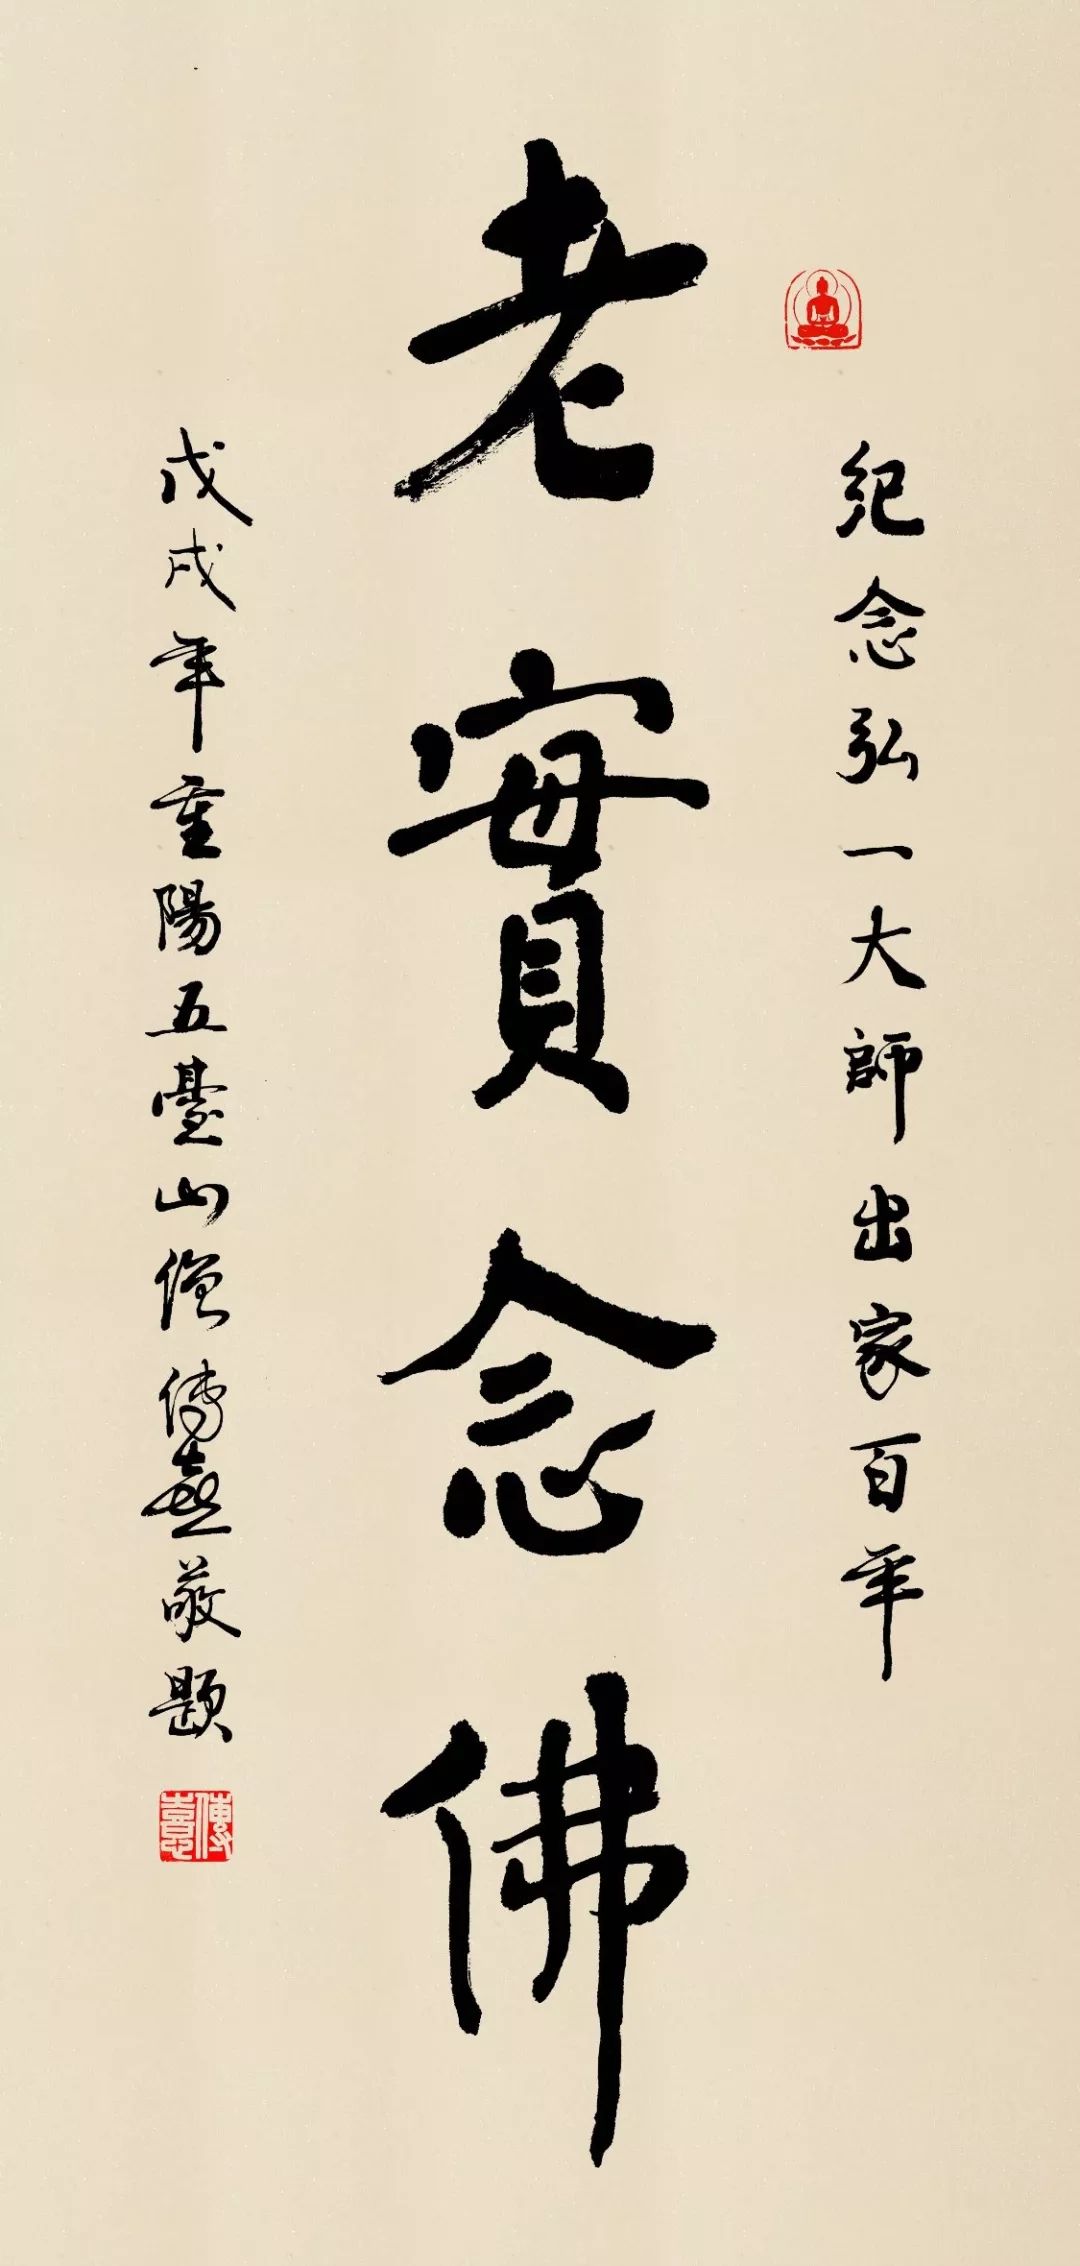 紀念弘一大師出家百年
老實念佛
戊戌年重陽五臺山僧傳憙敬題
傳憙